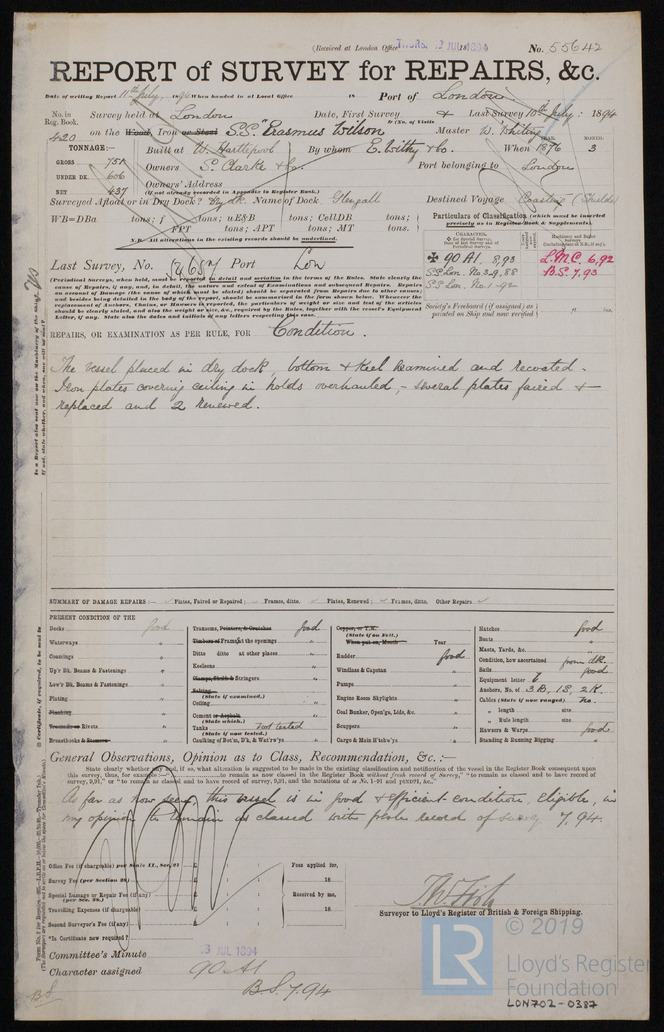 (Received at London Office THURS. 12 JUL 1894 No. 55642
REPORT of SURVEY for REPAIRS, &c.
Date of writing Report 11th July, 1894 When handed in at Local Office 18 Port of London
No. in Reg. Book. Survey held at London Date, First Survey & Last Survey 10th July: 1894
420 on the Wood, Iron or Steel S.S. "Erasmus Wilson" Master W. Whiting
TONNAGE:— Built at W. Hartlepool By whom E. Withy & Co. When 1876 YEAR. MONTH. 3
GROSS 751 Owners S. Clarke & Co. Port belonging to London
UNDER DK. 606 Owners' Address
NET 437 (If not already recorded in Appendix to Register Book.)
Surveyed Afloat or in Dry Dock? Dry dk. Name of Dock Glengall Destined Voyage Coasting (Shields)
WB=DBa tons; f tons; uE&B tons; CellDB tons;
FPT tons; APT tons; MT tons.
N.B. All alterations in the existing records should be underlined.
Particulars of Classification (which must be inserted precisely as in Register Book & Supplements).
CHARACTER.
90 A1. 8,93
S.S. Lon. No. 3-9,88
S.S. Lon. No. 1-92
L.M.C. 6,92
B.S. 7,93
Last Survey, No. Port Lon
Society's Freeboard (if assigned) as painted on Ship and now verified
REPAIRS, OR EXAMINATION AS PER RULE, FOR Condition.
The vessel placed in dry dock, bottom & keel examined and recoated.
Iron plates covering ceiling in holds overhauled, - several plates faired &
replaced and 2 renewed.
SUMMARY OF DAMAGE REPAIRS:— Plates, Faired or Repaired; Frames, ditto. Plates, Renewed; Frames, ditto. Other Repairs.
PRESENT CONDITION OF THE
Decks good
Waterways "
Coamings "
Up'r Dk. Beams & Fastenings "
Low'r Dk. Beams & Fastenings "
Plating "
Planking
Treenails or Rivets "
Breasthooks & Knees "
Transoms, Pointers, & Crutches good
Timbers of Frame at the openings "
Ditto ditto at other places "
Keelsons "
Clamps, Shelfs & Stringers "
Salting
(State if examined.)
Ceiling "
Cement or Asphalt "
(State which.)
Tanks not tested
(State if now tested.)
Caulking of Bot'm, D'k, & Wat'rw'ys "
Copper, or Y.M.
(State if on Felt.)
When put on, Month Year
Rudder good
Windlass & Capstan "
Pumps "
Engine Room Skylights "
Coal Bunker, Open'gs, Lids, &c. "
Scuppers "
Cargo & Main H'tchw'ys "
Hatches good
Boats "
Masts, Yards, &c. "
Condition, how ascertained from dk.
Sails good
Equipment letter
Anchors, No. of 3B, 1S, 2K.
Cables (State if now ranged) no.
" length size
" Rule length size
Hawsers & Warps good
Standing & Running Rigging "
General Observations, Opinion as to Class, Recommendation, &c.:—
As far as now seen, this vessel is in good & efficient condition, eligible, in
my opinion to remain as classed with fresh record of survey 7,94.
Office Fee (if chargeable) per Scale II., Sec. 27 £ Fees applied for,
Survey Fee (per Section 28) £ 18
Special Damage or Repair Fee (if any) £ Received by me,
(per Sec. 28.)
Travelling Expenses (if chargeable) £ 18
Second Surveyor's Fee (if any) £
Is Certificate now required?
Surveyor to Lloyd's Register of British & Foreign Shipping.
Committee's Minute 13 JUL 1894
Character assigned 90 A1
B.S. 7.94
BS
LR
© 2019
Lloyd's Register
Foundation
LON702-0387